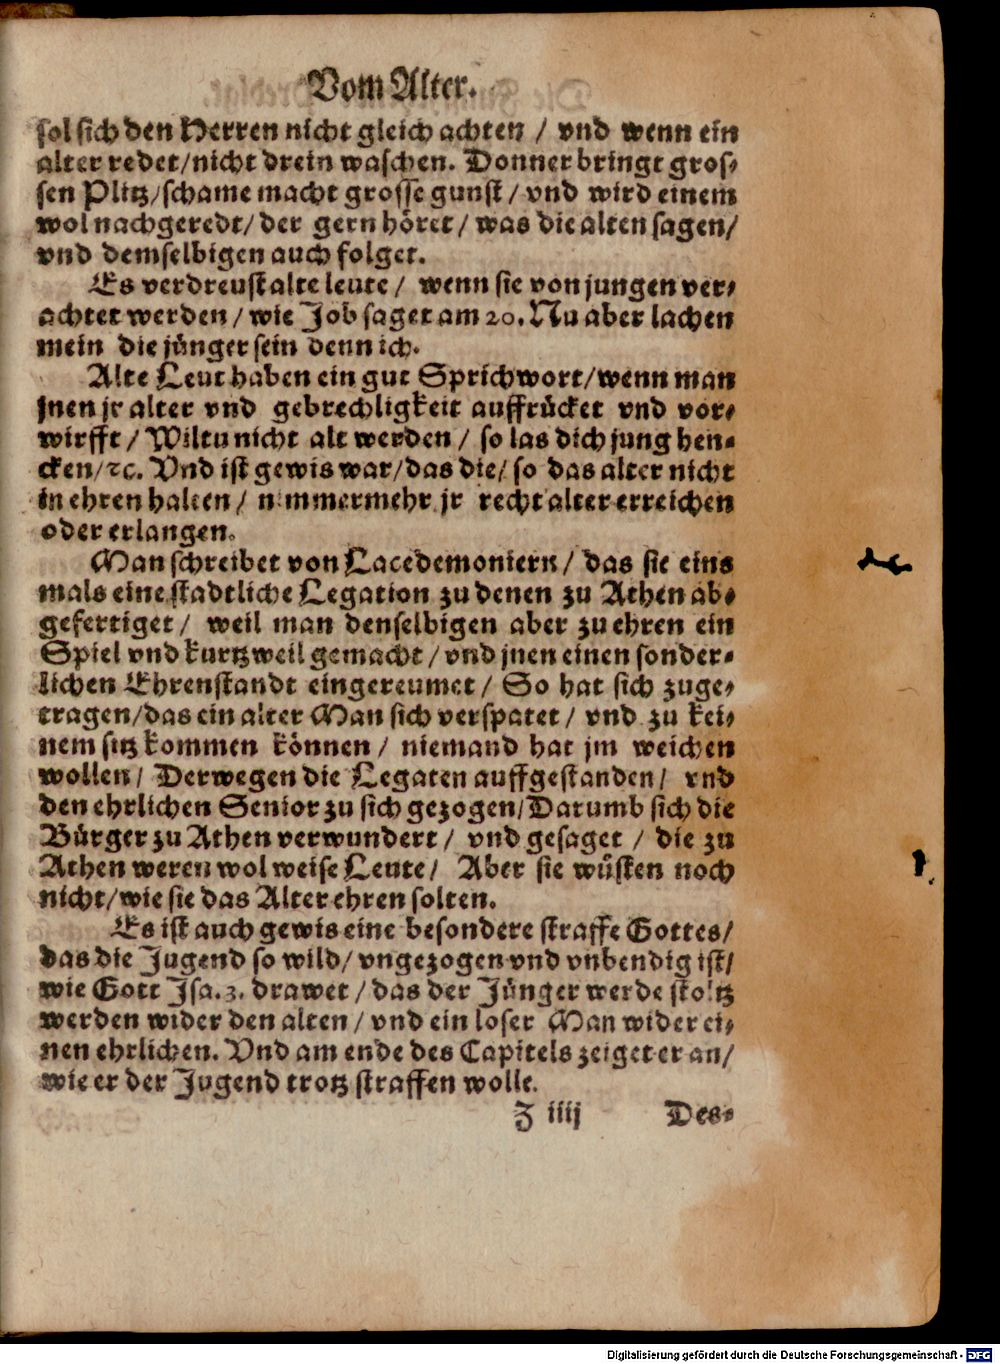 Vom Alter.
sol sich den Herren nicht gleich achten / vnd wenn ein
alter redet/nicht drein waschen. Donner bringt gros-
sen Plitz/schame macht grosse gunst / vnd wird einem
wol nachgeredt/ der gern höret / was die alten sagen/
vnd demselbigen auch folget.
Es verdreust alte leute / wenn sie von jungen ver-
achtet werden / wie Job saget am 20. Nu aber lachen
mein die jünger sein denn ich.
Alte Leut haben ein gut Sprichwort/wenn man
jnen jr alter vnd gebrechligkeit auffrücket vnd vor-
wirfft / Wiltu nicht alt werden / so las dich jung hen-
cken/ꝛc. Vnd ist gewis war/das die/ so das alter nicht
in ehren halten / nimmermehr jr recht alter erreichen
oder erlangen.
Man schreibet von Lacedemoniern / das sie eins
mals eine stadtliche Legation zu denen zu Athen ab-
gefertiget / weil man denselbigen aber zu ehren ein
Spiel vnd kurtzweil gemacht / vnd jnen einen sonder-
lichen Ehrenstandt eingereumet / So hat sich zuge-
tragen/das ein alter Man sich verspatet / vnd zu kei-
nem sitz kommen können / niemand hat jm weichen
wollen / Derwegen die Legaten auffgestanden / vnd
den ehrlichen Senior zu sich gezogen/Darumb sich die
Bürger zu Athen verwundert / vnd gesaget / die zu
Athen weren wol weise Leute / Aber sie wüsten noch
nicht/wie sie das Alter ehren solten.
Es ist auch gewis eine besondere straffe Gottes/
das die Jugend so wild/ vngezogen vnd vnbendig ist/
wie Gott Jsa.3. drawet / das der Jünger werde stoltz
werden wider den alten / vnd ein loser Man wider ei-
nen ehrlichen. Vnd am ende des Capitels zeiget er an/
wie er der Jugend trotz straffen wolle.
Z iiij Des-
Digitalisierung gefördert durch die Deutsche Forschungsgemeinschaft - DFG